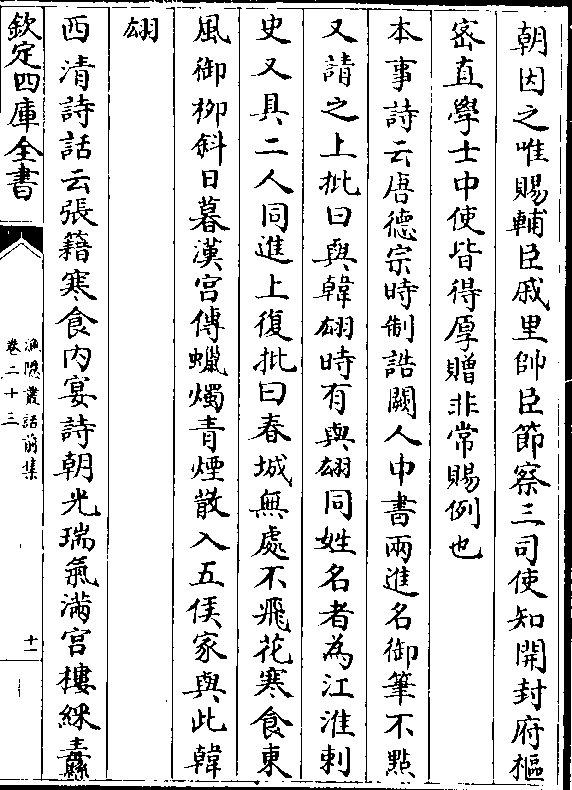 朝因之唯賜輔臣戚里帥臣節察三司使知開封府樞
密直學士中使皆得厚贈非常賜例也
本事詩云唐德宗時制誥闕人中書兩進名御筆不點
又請之上批曰與韓翃時有與翃同姓名者為江淮刺
史又具二人同進上復批曰春城無處不飛花寒食東
風御柳斜日暮漢宮傳蠟燭青煙散入五侯家與此韓
翃
西清詩話云張籍寒食内宴詩朝光瑞氣滿宮樓綵纛
欽定四庫全書
漁隱叢話前集
卷二十三
十一